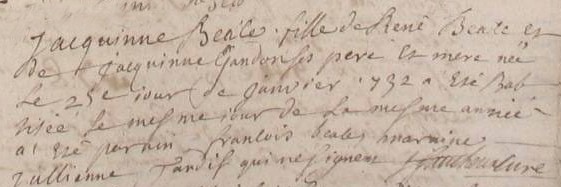 Jacquinne Beale fille de René Beale et
de Jacquinne Gandon ses pere et mere née
le 25e jour de Janvier 1732 a Eté Bab
tisée le mesme jour de la mesme année
a Eté parain francois beale maraine
Jullienne Tardif qui ne signent curé